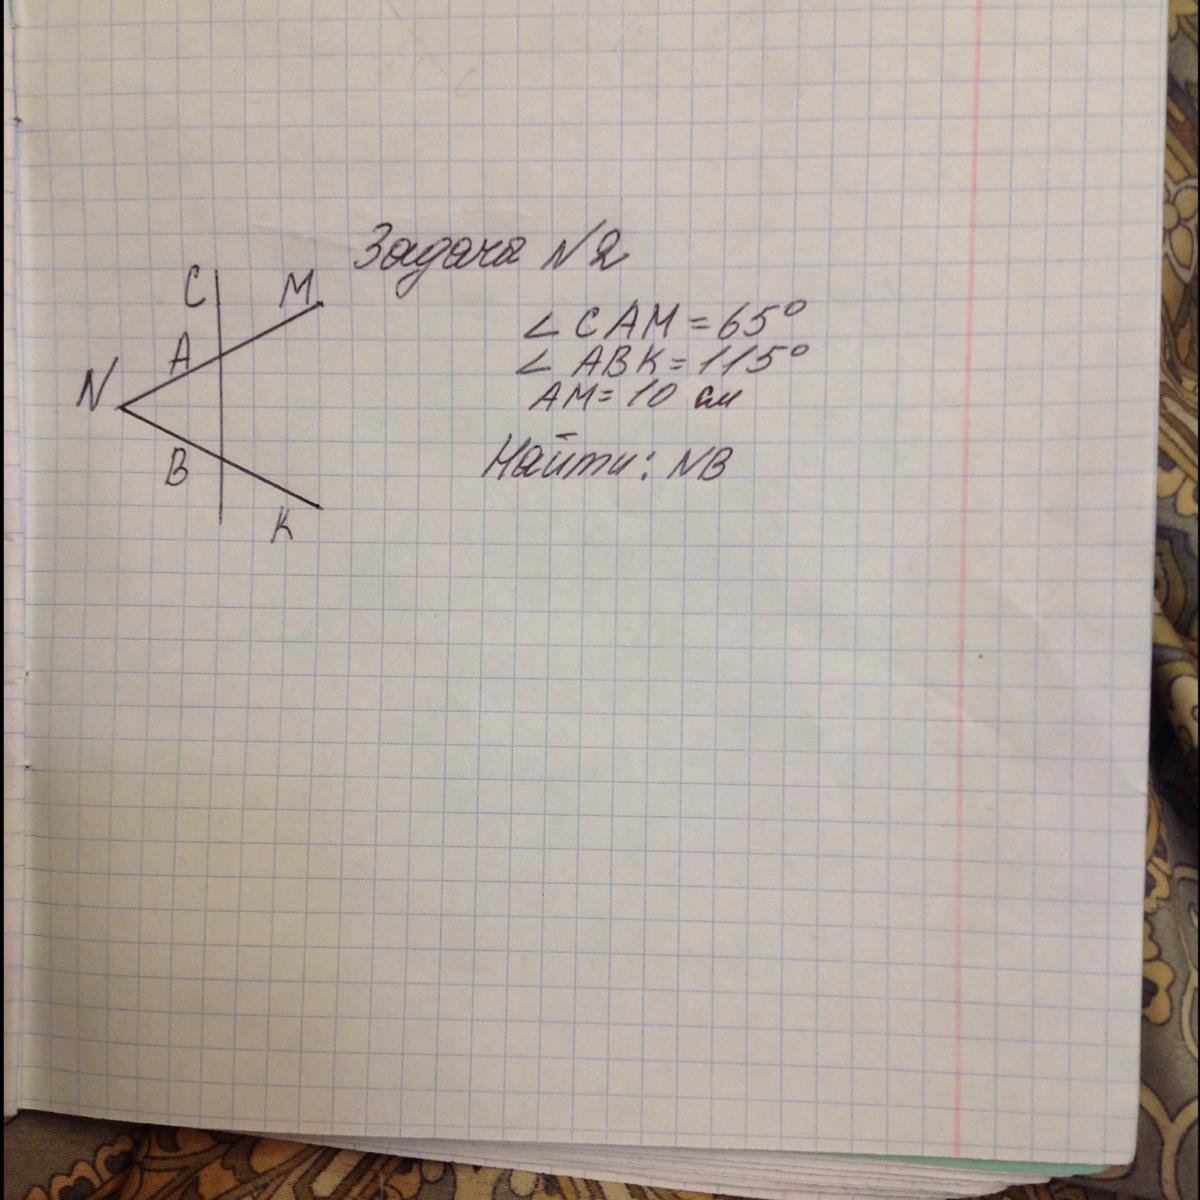 Задача N2
C
M
A
N
B
K
∠ CAM = 65°
∠ ABK = 115°
AM = 10 см
Найти: NB